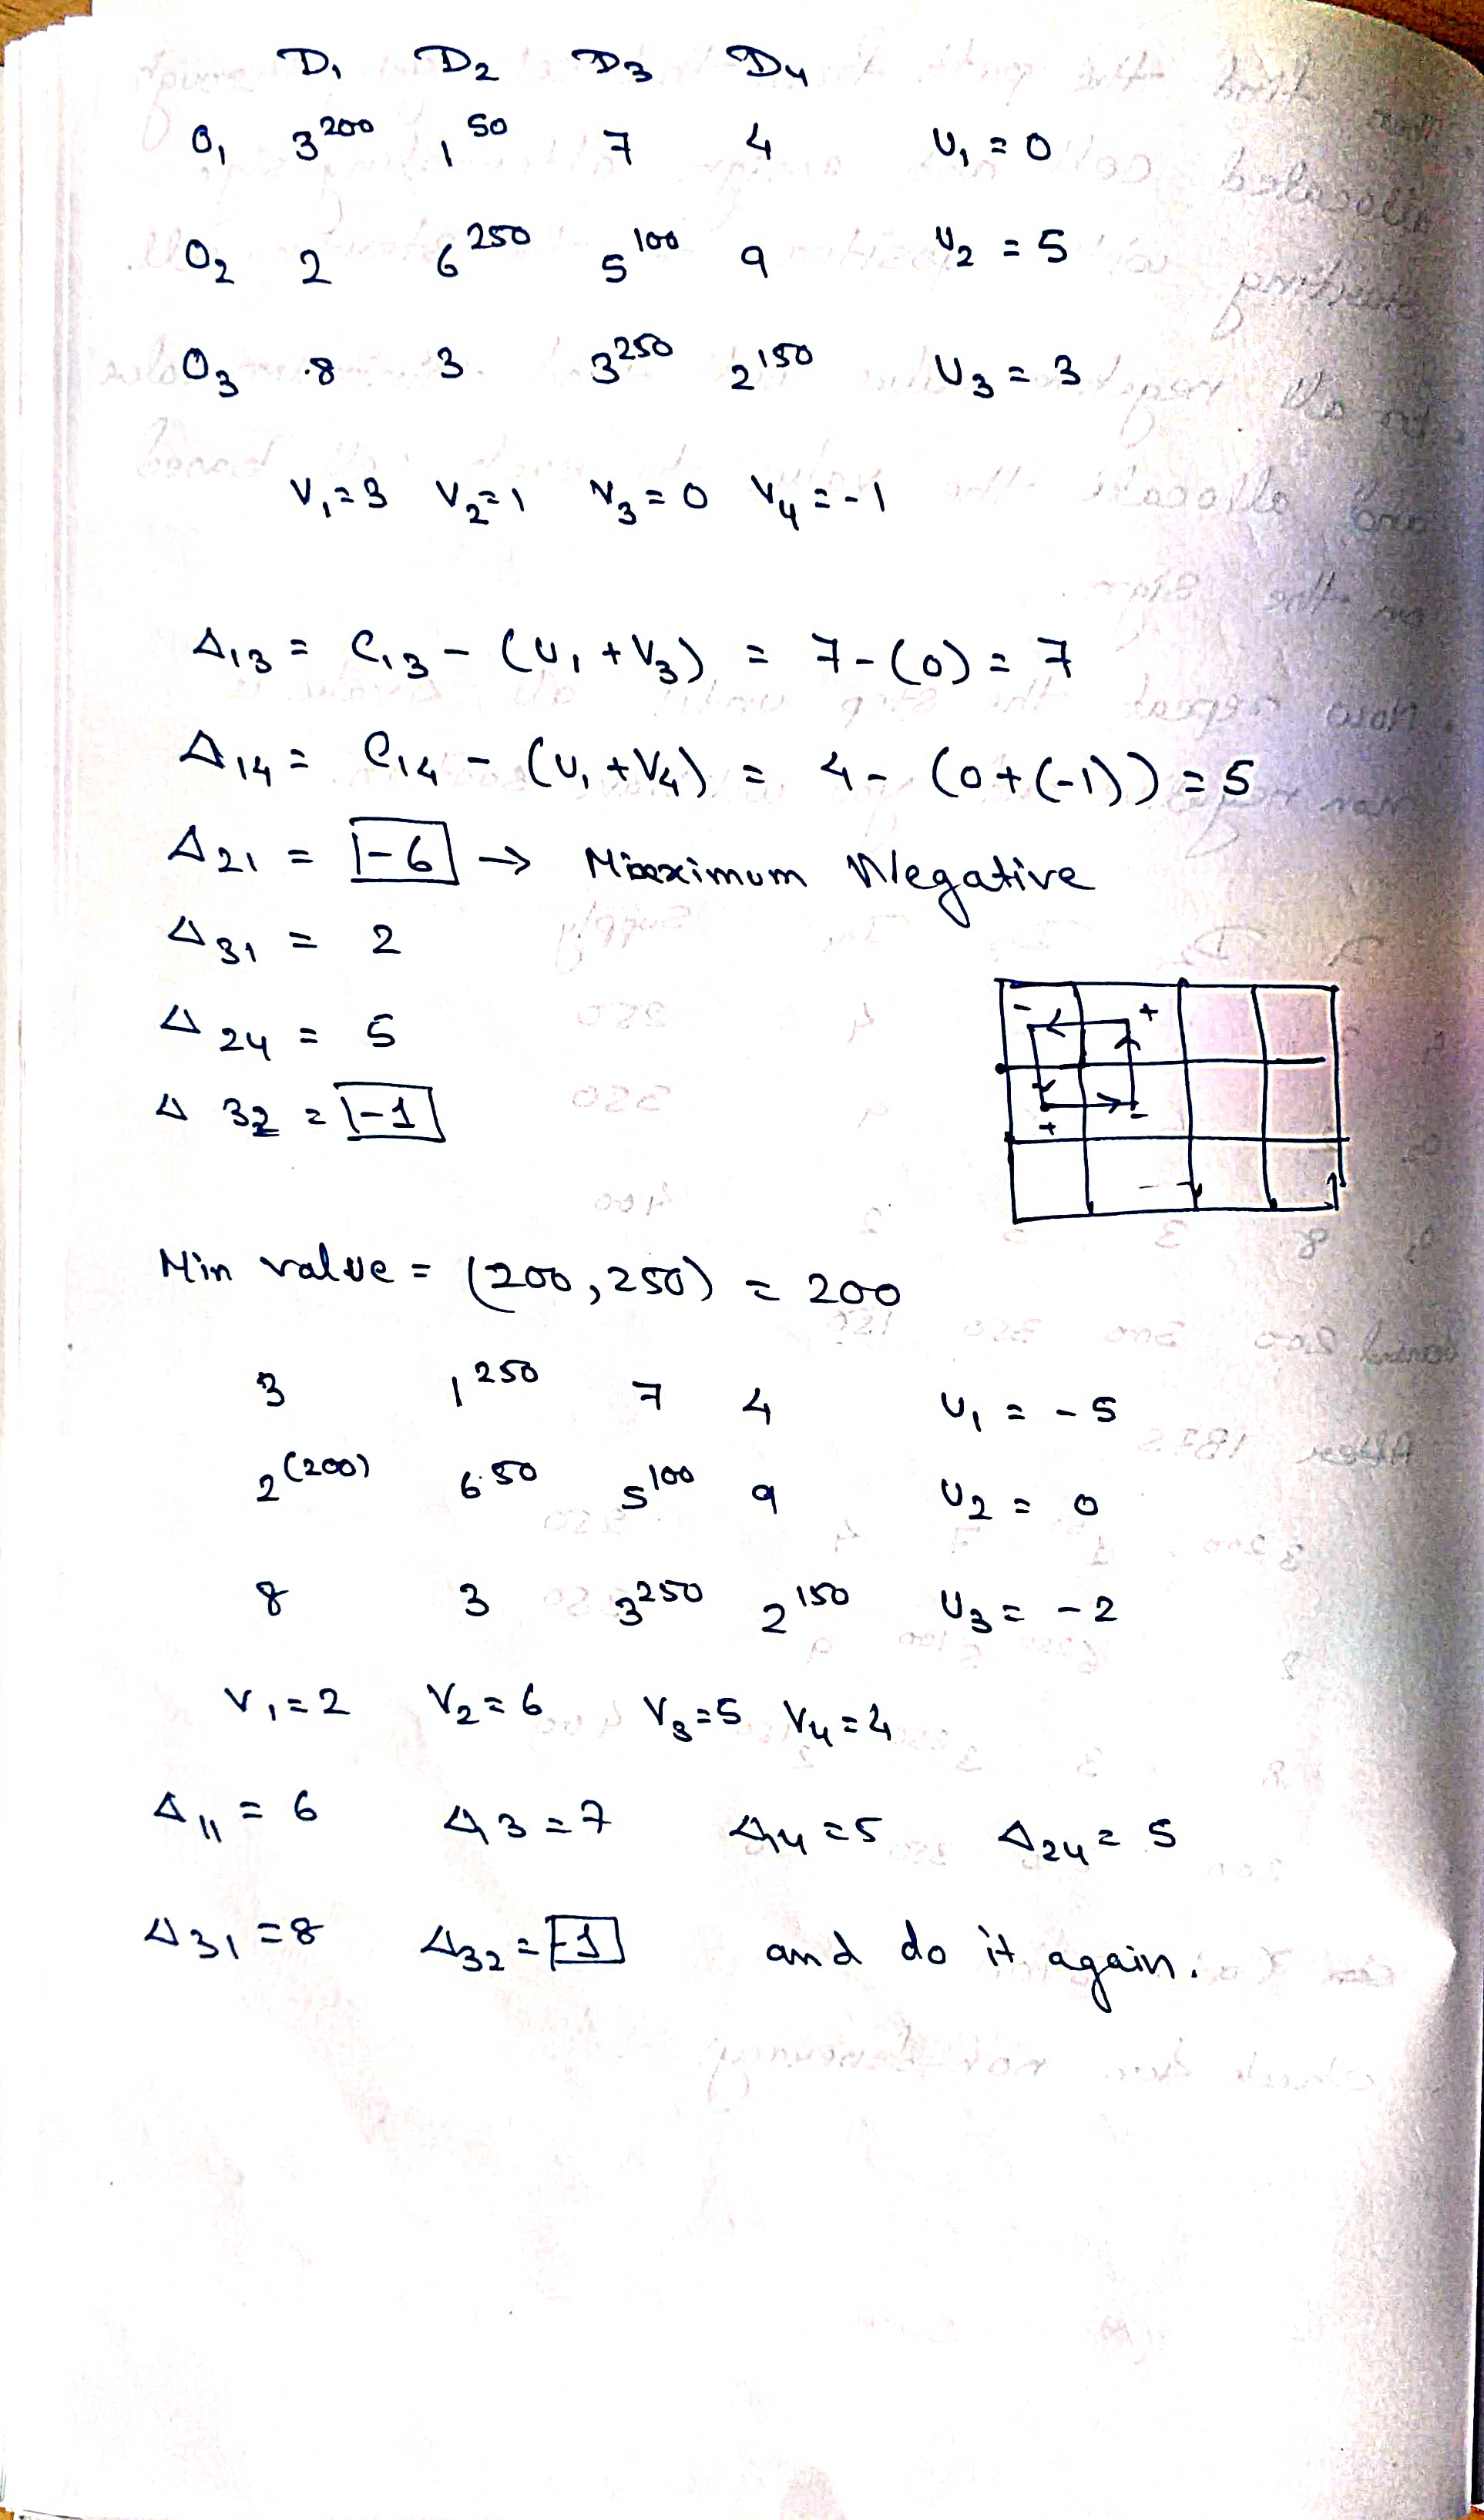 D₁ D₂ D₃ D₄
O₁ 3²⁰⁰ 1⁵⁰ 7 4 U₁ = 0
O₂ 2 6²⁵⁰ 5¹⁰⁰ 9 U₂ = 5
O₃ 8 3 3²⁵⁰ 2¹⁵⁰ U₃ = 3
V₁=3 V₂=1 V₃=0 V₄=-1
Δ₁₃ = C₁₃ - (U₁ + V₃) = 7-(0) = 7
Δ₁₄ = C₁₄ - (U₁ + V₄) = 4 - (0+(-1)) = 5
Δ₂₁ = -6 → Maximum Negative
Δ₃₁ = 2
Δ₂₄ = 5
Δ₃₂ = -1
- +
+ -
Min value = (200, 250) = 200
3 1²⁵⁰ 7 4 U₁ = -5
2⁽²⁰⁰⁾ 6⁵⁰ 5¹⁰⁰ 9 U₂ = 0
8 3 3²⁵⁰ 2¹⁵⁰ U₃ = -2
V₁=2 V₂=6 V₃=5 V₄=4
Δ₁₁ = 6 Δ₁₃ = 7 Δ₁₄ = 5 Δ₂₄ = 5
Δ₃₁ = 8 Δ₃₂ = -1 and do it again.